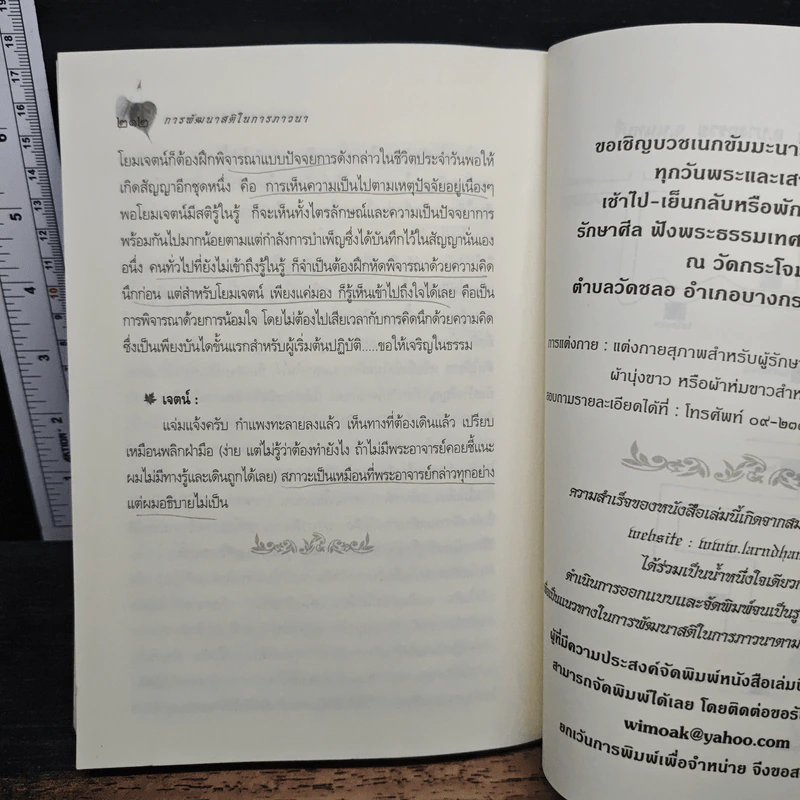 ๒๑๒ การพัฒนาสติในการภาวนา
โยมเจตน์ก็ต้องฝึกพิจารณาแบบปัจจยการดังกล่าวในชีวิตประจำวันพอให้
เกิดสัญญาอีกชุดหนึ่ง คือ การเห็นความเป็นไปตามเหตุปัจจัยอยู่เนืองๆ
พอโยมเจตน์มีสติรู้ในรู้ ก็จะเห็นทั้งไตรลักษณ์และความเป็นปัจจยาการ
พร้อมกันไปมากน้อยตามแต่กำลังการบำเพ็ญซึ่งได้บันทึกไว้ในสัญญานั่นเอง
อนึ่ง คนทั่วไปที่ยังไม่เข้าถึงรู้ในรู้ ก็จำเป็นต้องฝึกหัดพิจารณาด้วยความคิด
นึกก่อน แต่สำหรับโยมเจตน์ เพียงแค่มอง ก็รู้เห็นเข้าไปถึงใจได้เลย คือเป็น
การพิจารณาด้วยการน้อมใจ โดยไม่ต้องไปเสียเวลากับการคิดนึกด้วยความคิด
ซึ่งเป็นเพียงบันไดขั้นแรกสำหรับผู้เริ่มต้นปฏิบัติ.....ขอให้เจริญในธรรม
เจตน์ :
แจ่มแจ้งครับ กำแพงทะลายลงแล้ว เห็นทางที่ต้องเดินแล้ว เปรียบ
เหมือนพลิกฝ่ามือ (ง่าย แต่ไม่รู้ว่าต้องทำยังไง ถ้าไม่มีพระอาจารย์คอยชี้แนะ
ผมไม่มีทางรู้และเดินถูกได้เลย) สภาวะเป็นเหมือนที่พระอาจารย์กล่าวทุกอย่าง
แต่ผมอธิบายไม่เป็น
ขอเชิญบวชเนกขัมมะนา
ทุกวันพระและเสา
เช้าไป-เย็นกลับหรือพัก
รักษาศีล ฟังพระธรรมเทศ
ณ วัดกระโจม
ตำบลวัดชลอ อำเภอบางกร
การแต่งกาย : แต่งกายสุภาพสำหรับผู้รักษา
ผ้านุ่งขาว หรือผ้าห่มขาวสำห
สอบถามรายละเอียดได้ที่ : โทรศัพท์ ๐๙-๒๓๐
ความสำเร็จของหนังสือเล่มนี้เกิดจากสม
website : www.larndham
ได้ร่วมเป็นน้ำหนึ่งใจเดียวก
ดำเนินการออกแบบและจัดพิมพ์จนเป็นรู
เพื่อเป็นแนวทางในการพัฒนาสติในการภาวนาตาม
ผู้ที่มีความประสงค์จัดพิมพ์หนังสือเล่มนี้
สามารถจัดพิมพ์ได้เลย โดยติดต่อขอรับ
wimoak@yahoo.com
ยกเว้นการพิมพ์เพื่อจำหน่าย จึงขอส